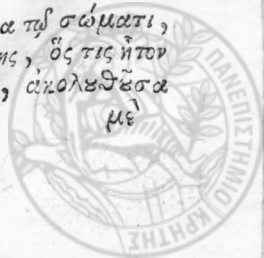 α τῷ σώματι,
ης, ὅς τις ἦτον
, ἀκολουθοῦσα
μὲ
ΠΑΝΕΠΙΣΤΗΜΙΟ ΚΡΗΤΗΣ